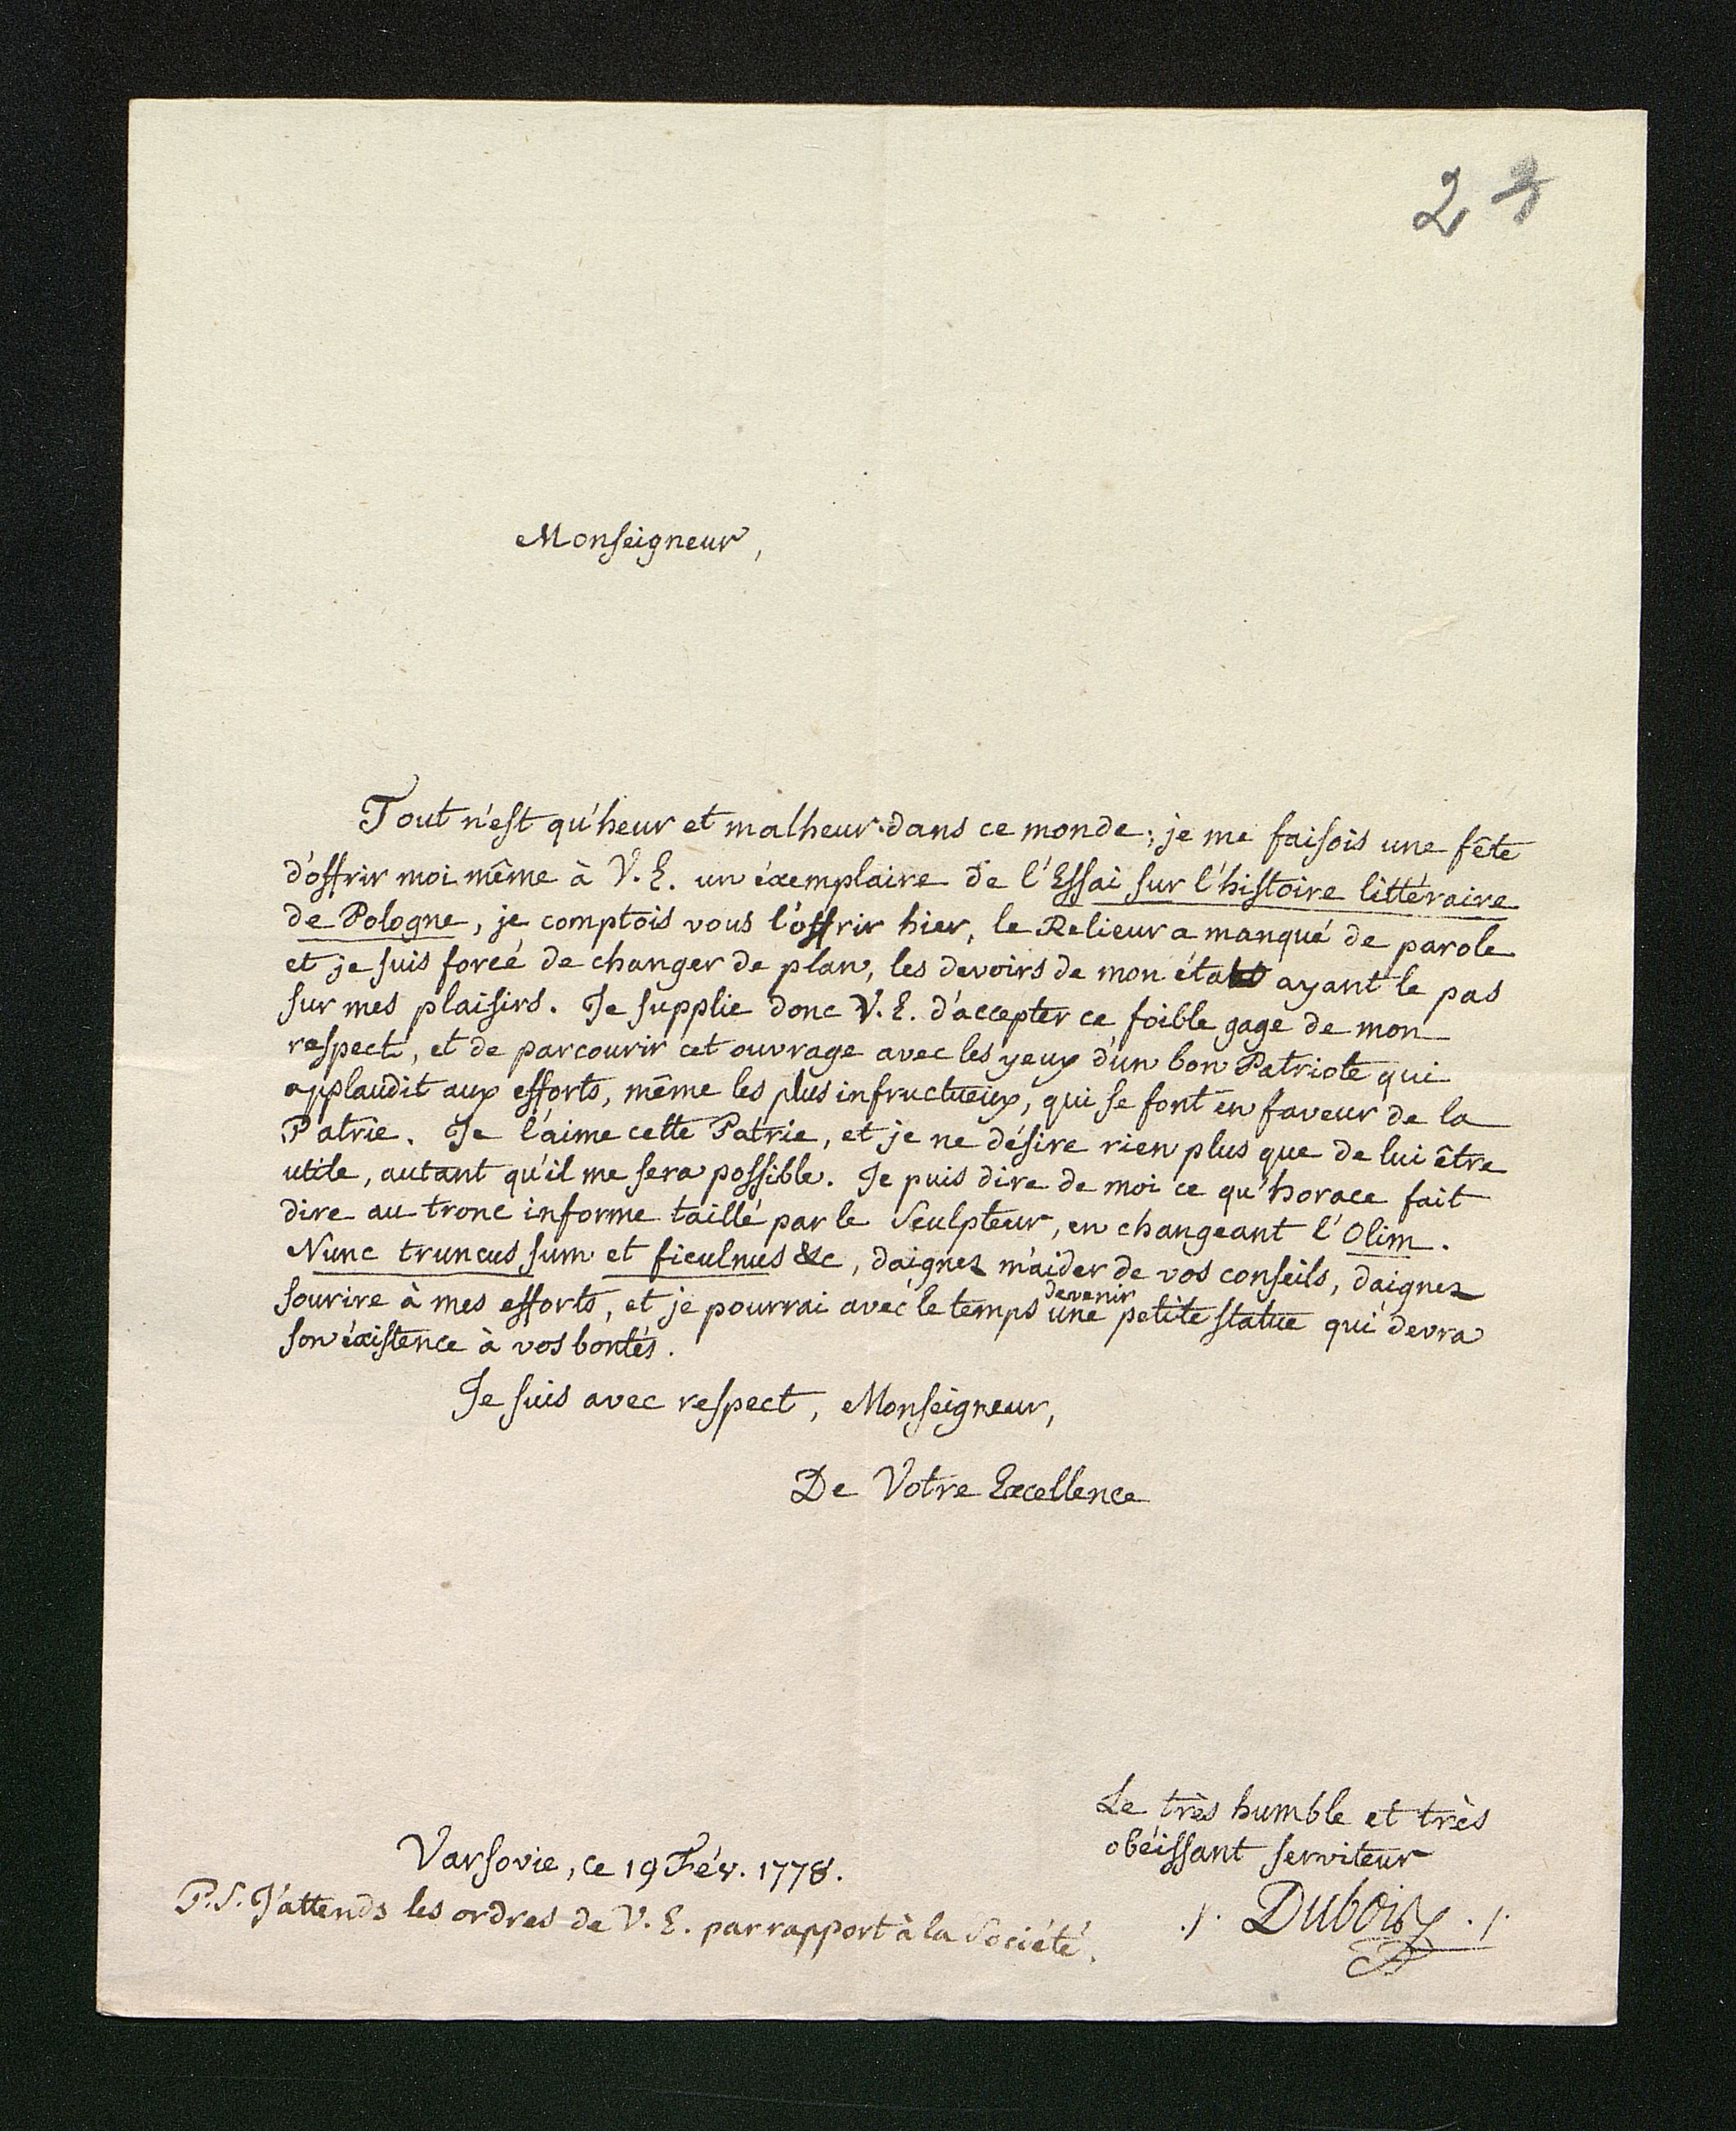 2
Monseigneur,
Tout n'est qu'heur et malheur dans ce monde; je me faisois une fête
d'offrir moi même à V. E. un éxemplaire de l'Essai sur l'histoire littéraire
de Pologne, je comptois vous l'offrir hier, le Relieur a manqué de parole
et je suis forcé de changer de plan, les devoirs de mon état ayant le pas
sur mes plaisirs. Je supplie donc V. E. d'accepter ce foible gage de mon
respect, et de parcourir cet ouvrage avec les yeux d'un bon Patriote qui
applaudit aux efforts, même les plus infructueux, qui se font en faveur de la
Patrie. Je l'aime cette Patrie, et je ne désire rien plus que de lui être
utile, autant qu'il me sera possible. Je puis dire de moi ce qu'horace fait
dire au tronc informe taillé par le Sculpteur, en changeant l'Olim.
Nunc truncus sum et ficulnus &c, daignez m'aider de vos conseils, daignez
sourire à mes efforts, et je pourrai avec le temps devenir une petite statue qui devra
son éxistence à vos bontés.
Je suis avec respect, Monseigneur,
De Votre Excellence
Le très humble et très
obéissant serviteur
Varsovie, ce 19 Fév. 1778.
./. Dubois ./.
P.S. J'attends les ordres de V. E. par rapport à la Société.